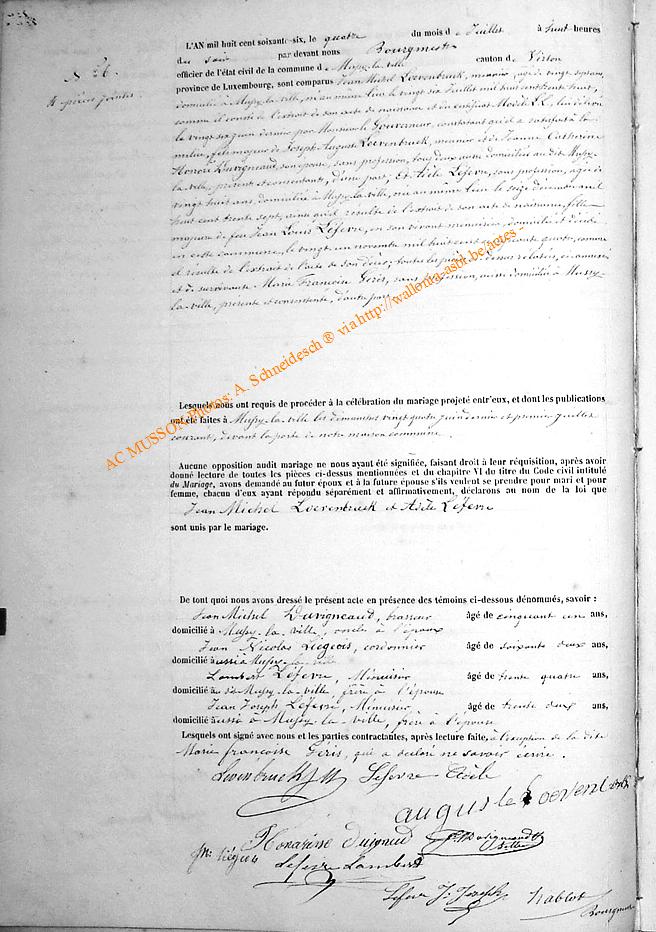 N° 26.
4 pièces jointes
L'AN mil huit cent soixante-six, le quatre du mois de Juillet à huit heures
du soir par devant nous Bourgmestre
officier de l'état civil de la commune d Mussy-la-ville canton d Virton
province de Luxembourg, sont comparus Jean Michel Loevenbruck, menuisier, âgé de vingt sept ans,
domicilié à Mussy-la-ville, né au même lieu le vingt six Juillet mil huit cent trente huit,
comme il conste de l'extrait de son acte de naissance et du certificat Modèle LL, lui délivré
le vingt six juin dernier par Monsieur le Gouverneur, constatant qu'il a satisfait à la
milice, fils majeur de Joseph Auguste Loevenbruck, et de Jeanne Catherine
Honorine Duvigneaud, son épouse, sans profession, tous deux aussi domiciliés au dit Mussy-
la-ville, présents et consentants, d'une part; et Adèle Lefevre, sans profession, âgée de
vingt huit ans, domiciliée à Mussy-la-ville, née au même lieu le seize décembre mil
huit cent trente sept, ainsi qu'il résulte de l'extrait de son acte de naissance, fille
majeure de feu Jean Louis Lefevre, en son vivant menuisier, domicilié et décédé
en cette commune, le vingt un novembre mil huit cent quatre, comme
il résulte de l'extrait de l'acte de son décès; toutes les pièces
et de survivante Marie Françoise Geris, sans profession, aussi domiciliée à Mussy-
la-ville, présente et consentante, d'autre part
Lesquels nous ont requis de procéder à la célébration du mariage projeté entr'eux, et dont les publications
ont été faites à Mussy-la-ville les dimanches vingt quatre juin dernier et premier Juillet
courant, devant la porte de notre maison commune.
Aucune opposition audit mariage ne nous ayant été signifiée, faisant droit à leur réquisition, après avoir
donné lecture de toutes les pièces ci-dessus mentionnées et du chapitre VI du titre du Code civil intitulé
du Mariage, avons demandé au futur époux et à la future épouse s'ils veulent se prendre pour mari et pour
femme, chacun d'eux ayant répondu séparément et affirmativement, déclarons au nom de la loi que
Jean Michel Loevenbruck et Adèle Lefevre
sont unis par le mariage.
De tout quoi nous avons dressé le présent acte en présence des témoins ci-dessous dénommés, savoir :
Jean Michel Duvigneaud, brasseur âgé de cinquante un ans,
domicilié à Mussy-la-ville, oncle à l'époux
Jean Nicolas Liégeois, cordonnier âgé de soixante deux ans,
domicilié aussi à Mussy-la-ville
Lambert Lefevre, Menuisier, âgé de trente quatre ans,
domicilié à Mussy-la-ville, frère à l'épouse
Jean Joseph Lefevre, Menuisier, âgé de trente deux ans,
domicilié aussi à Mussy-la-ville, frère à l'épouse
Lesquels ont signé avec nous et les parties contractantes, après lecture faite, à l'exception de la dite
Marie françoise Geris, qui a déclaré ne savoir écrire.
Lefevre Adèle
auguste Loevenbruck
Lefevre Lambert
Lefevre J. Joseph
Bourgmestre
AC MUSSON Photos: A. Schneidesch ® via http://wallonia-asbl.be/actes -